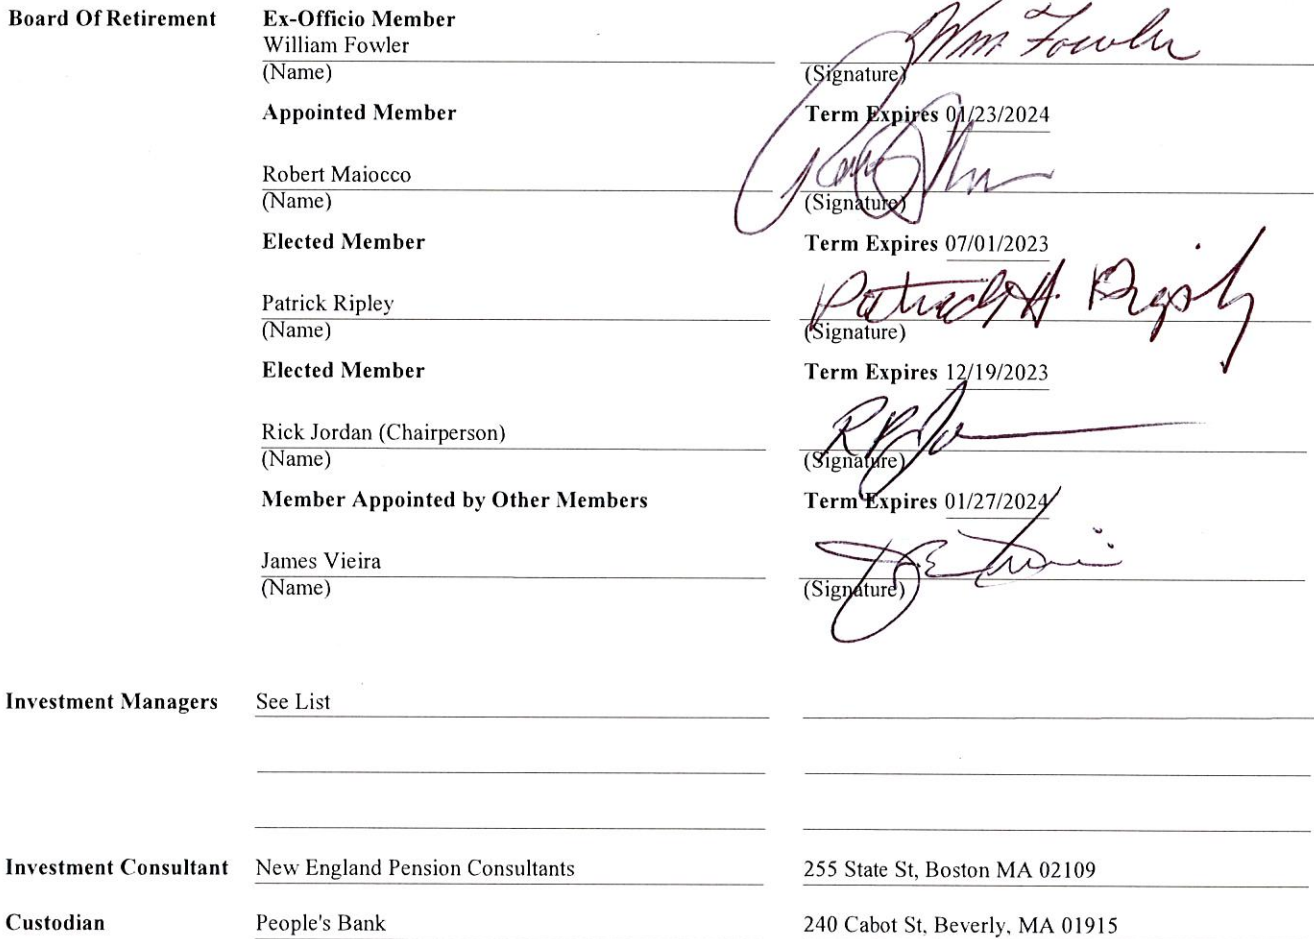 Board Of Retirement Ex-Officio Member
William Fowler Wm Fowler
(Name) (Signature)
Appointed Member Term Expires 01/23/2024
Robert Maiocco
(Name) (Signature)
Elected Member Term Expires 07/01/2023
Patrick Ripley Patrick H. Ripley
(Name) (Signature)
Elected Member Term Expires 12/19/2023
Rick Jordan (Chairperson)
(Name) (Signature)
Member Appointed by Other Members Term Expires 01/27/2024
James Vieira
(Name) (Signature)
Investment Managers See List
Investment Consultant New England Pension Consultants 255 State St, Boston MA 02109
Custodian People's Bank 240 Cabot St, Beverly, MA 01915